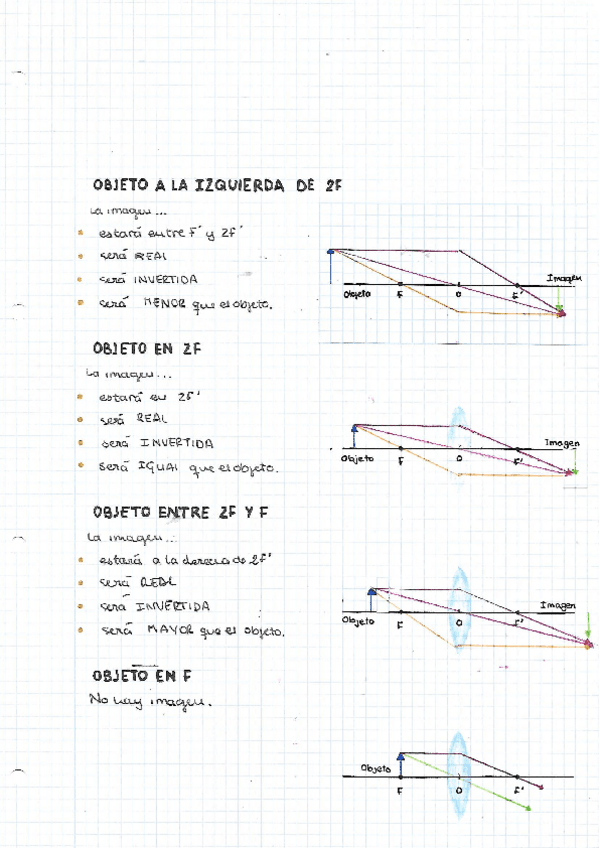 OBJETO A LA IZQUIERDA DE 2F
La imagen...
• estará entre F' y 2F'
• será REAL
• será INVERTIDA
• será MENOR que el objeto.
Imagen
Objeto F O F'
OBJETO EN 2F
La imagen...
• estará en 2F'
• será REAL
• será INVERTIDA
• será IGUAL que el objeto.
Imagen
Objeto F O F'
OBJETO ENTRE 2F Y F
La imagen...
• estará a la derecha de 2F'
• será REAL
• será INVERTIDA
• será MAYOR que el objeto.
Imagen
Objeto F O F'
OBJETO EN F
No hay imagen.
Objeto
F O F'